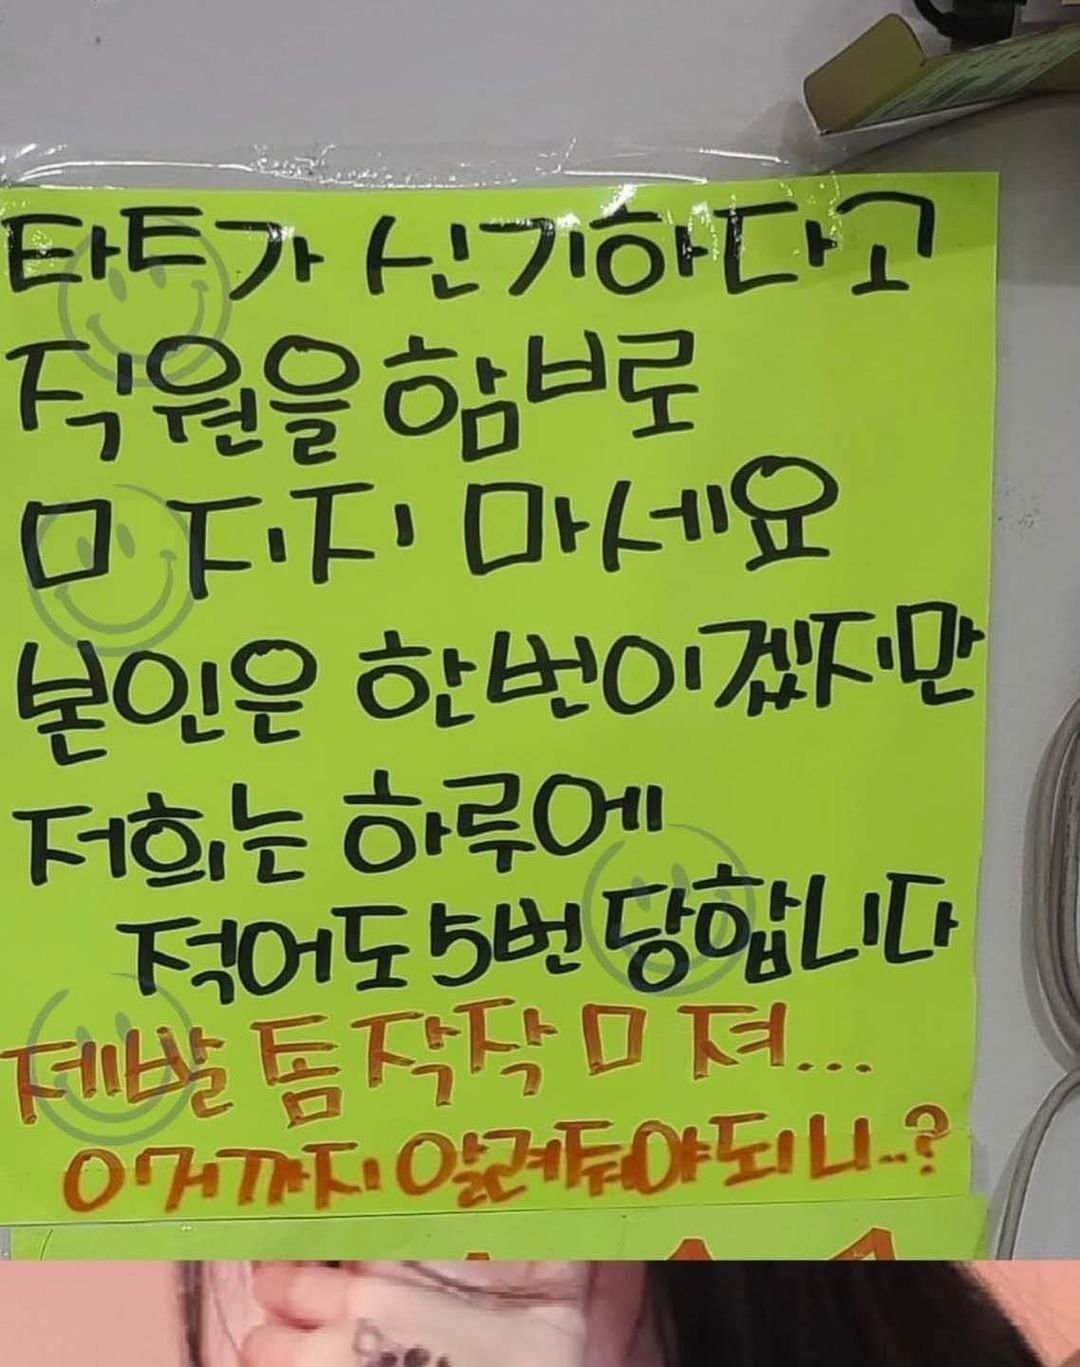 타투가 신기하다고
직원을 함브로
ㅁ지지 마세요
본인은 한번이겠지만
저희는 하루에
적어도 5번 당합니다
제발 돔작작 ㅁ져...
이거까지 알려둬야되니..?